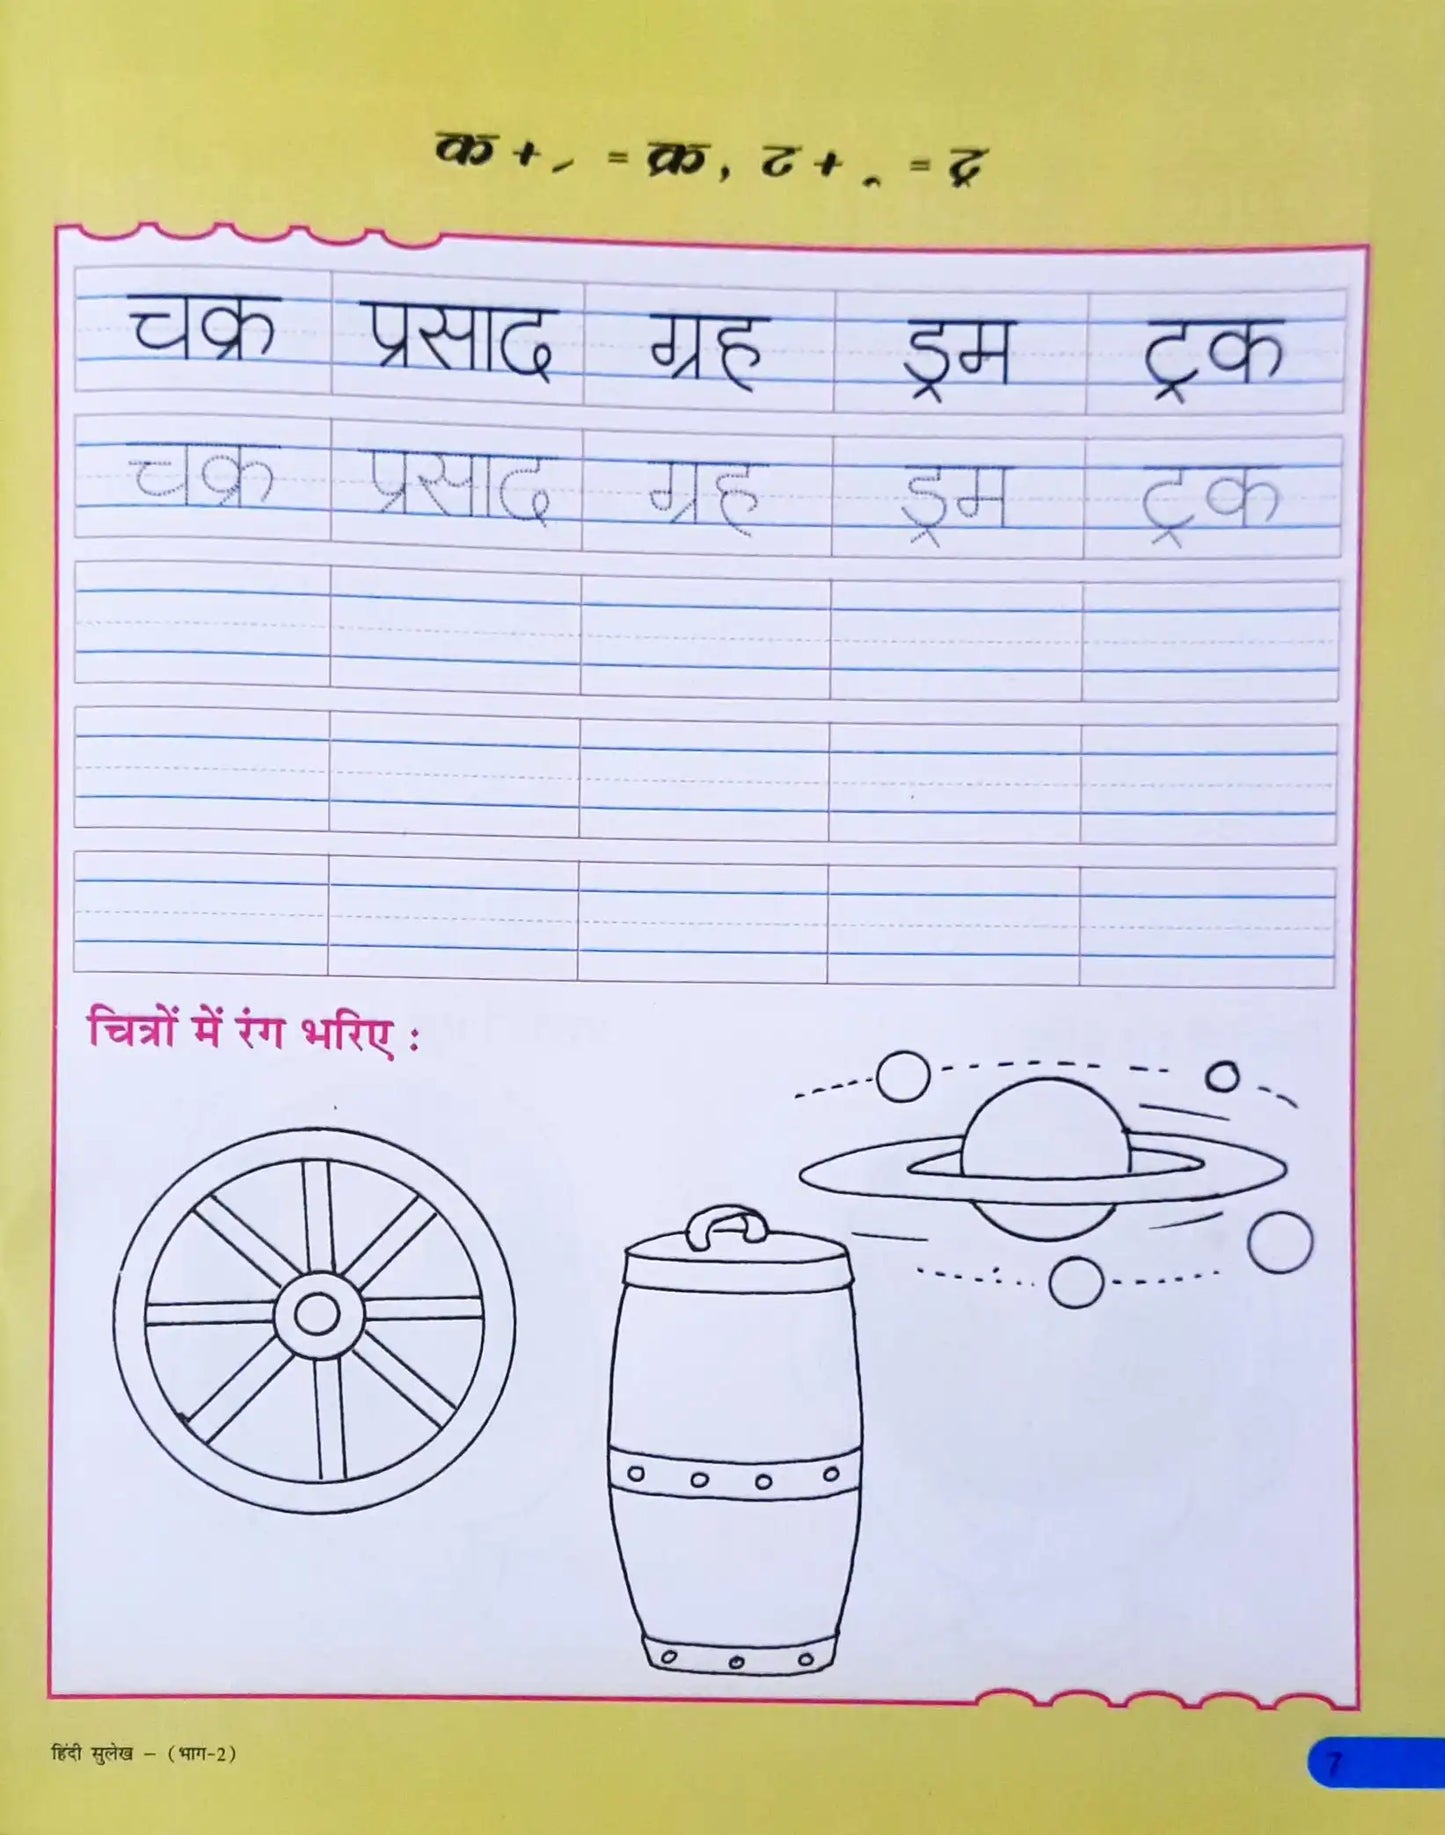 क + ्र = क्र, ट + ्र = ट्र
चक्र प्रसाद ग्रह ड्रम ट्रक
चक्र प्रसाद ग्रह ड्रम ट्रक
चित्रों में रंग भरिए :
हिंदी सुलेख – (भाग-2)
7